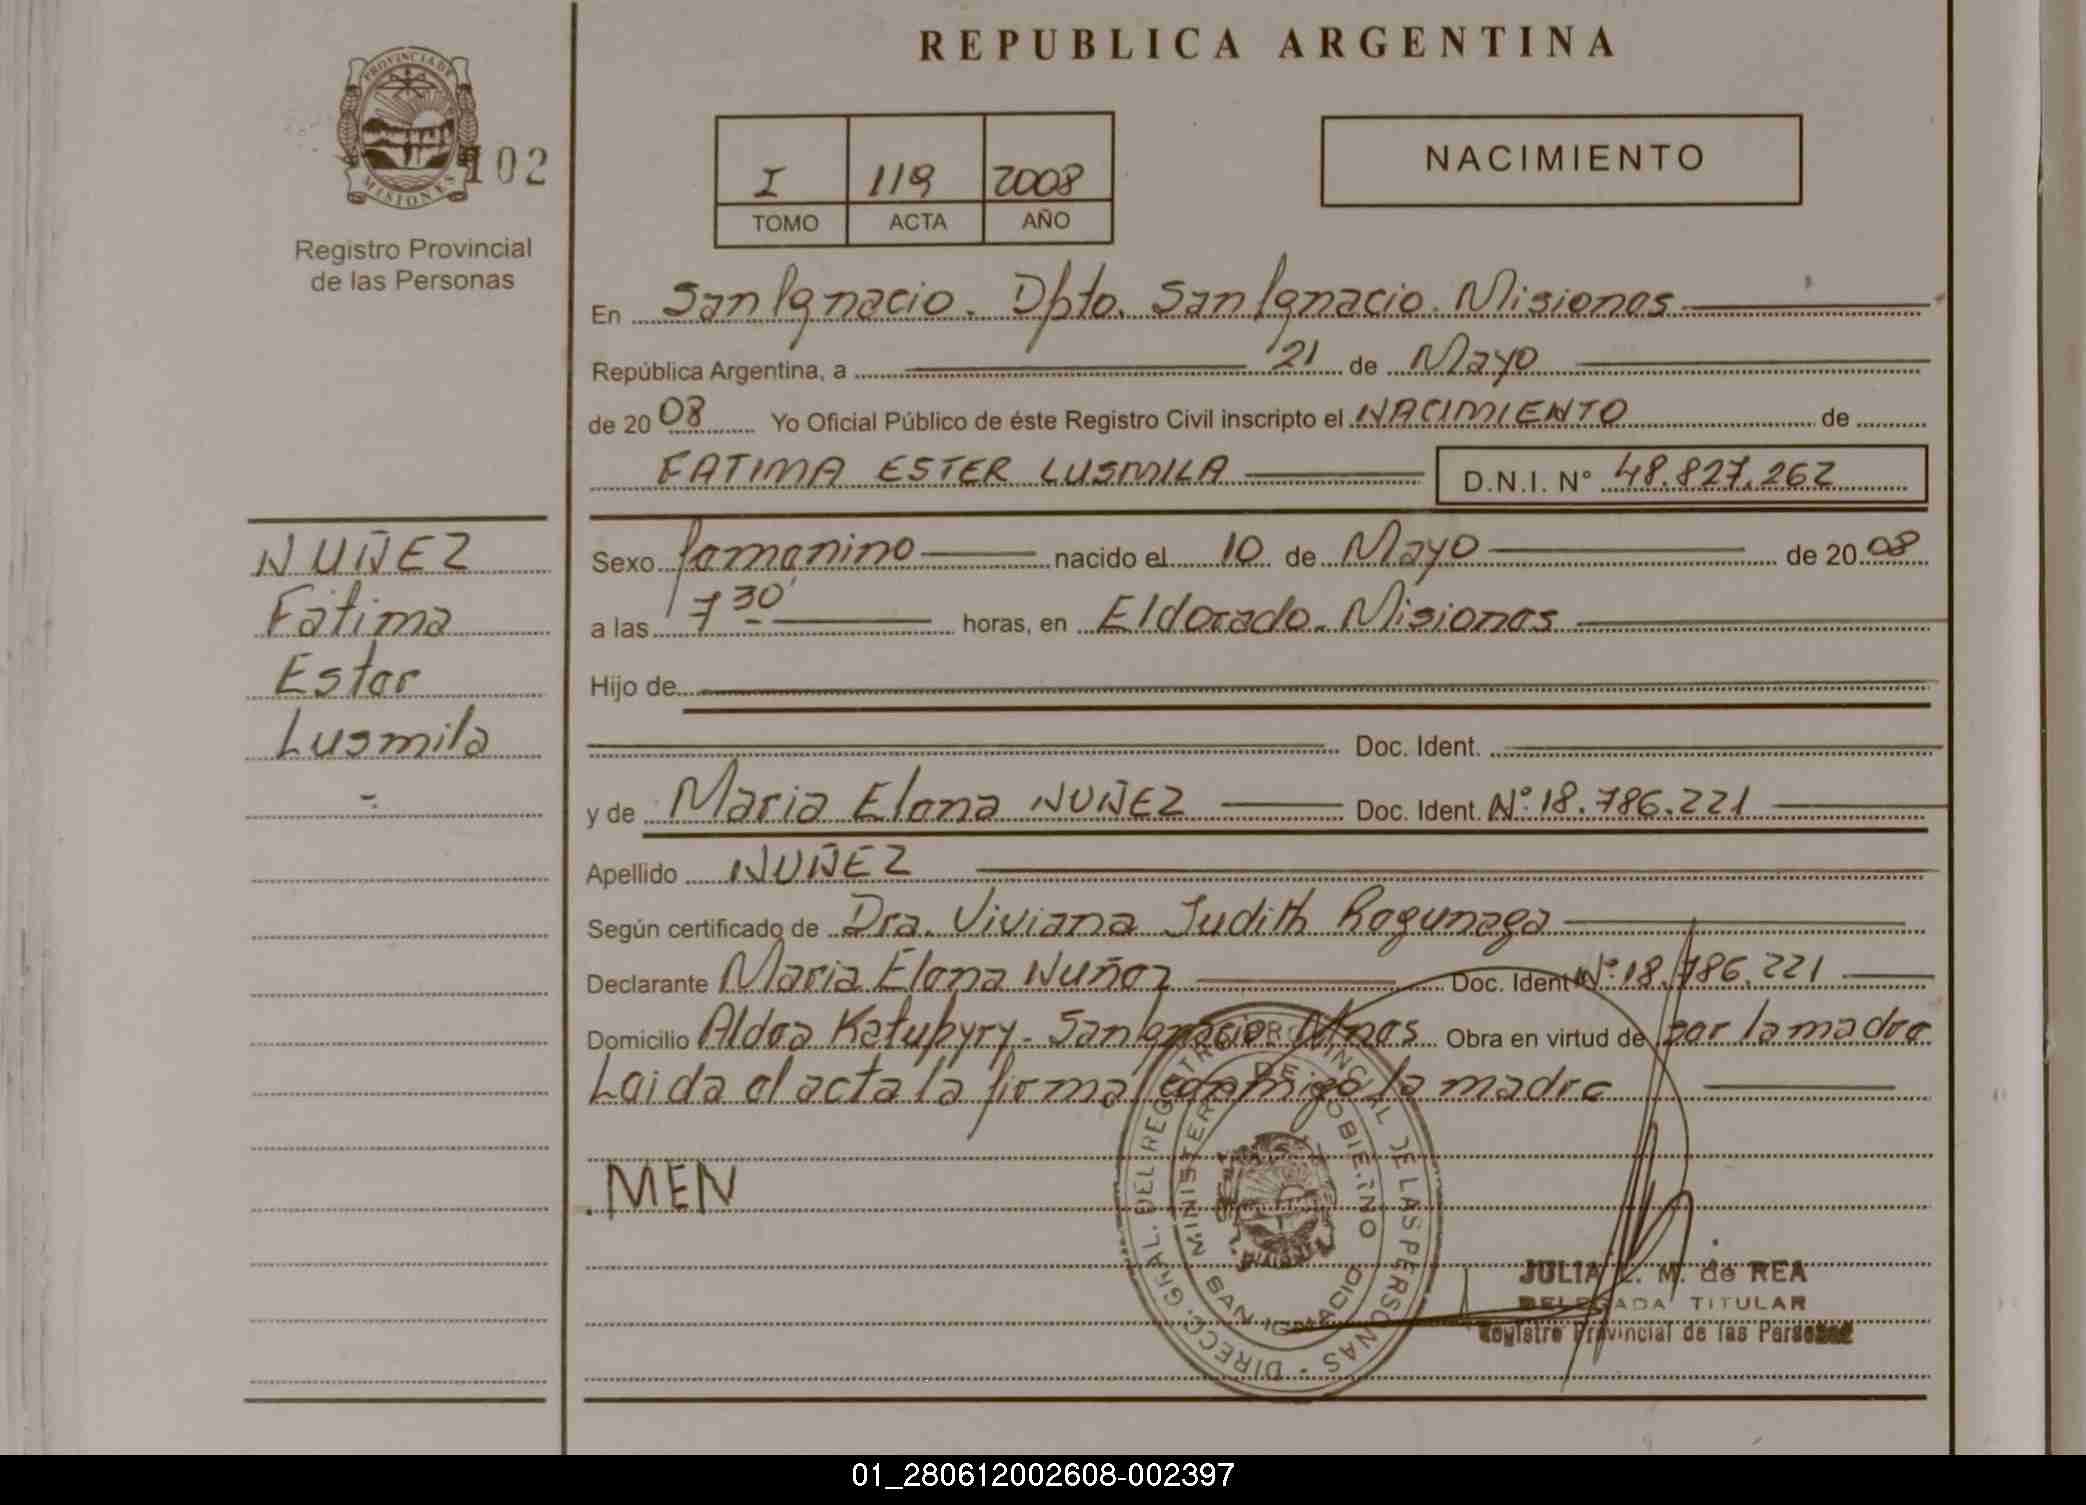 REPUBLICA ARGENTINA
PROVINCIA DE
MISIONES
102
Registro Provincial
de las Personas
I 119 2008
TOMO ACTA AÑO
NACIMIENTO
En San Ignacio. Dpto. San Ignacio. Misiones
República Argentina, a 21 de Mayo
de 20 08 Yo Oficial Público de éste Registro Civil inscripto el NACIMIENTO de
FATIMA ESTER LUSMILA D.N.I. N° 48.827.262
NUÑEZ
Fátima
Ester
Lusmila
Sexo femenino nacido el 10 de Mayo de 20 08
a las 7 30' horas, en Eldorado. Misiones
Hijo de
Doc. Ident.
y de Maria Elena NUÑEZ Doc. Ident. N° 18.786.221
Apellido NUÑEZ
Según certificado de Dra. Viviana Judith
Declarante Maria Elena Nuñez Doc. Ident N° 18.786.221
Domicilio Aldea Katupyry - San Ignacio Mnes. Obra en virtud de por la madre
Leida el acta la firma conmigo la madre
MEN
DIRECC. GRAL. DEL REGISTRO PROVINCIAL DE LAS PERSONAS
MINISTERIO DE GOBIERNO
SAN IGNACIO
JULIA L. M. de REA
DELEGADA TITULAR
Registro Provincial de las Personas
01_280612002608-002397